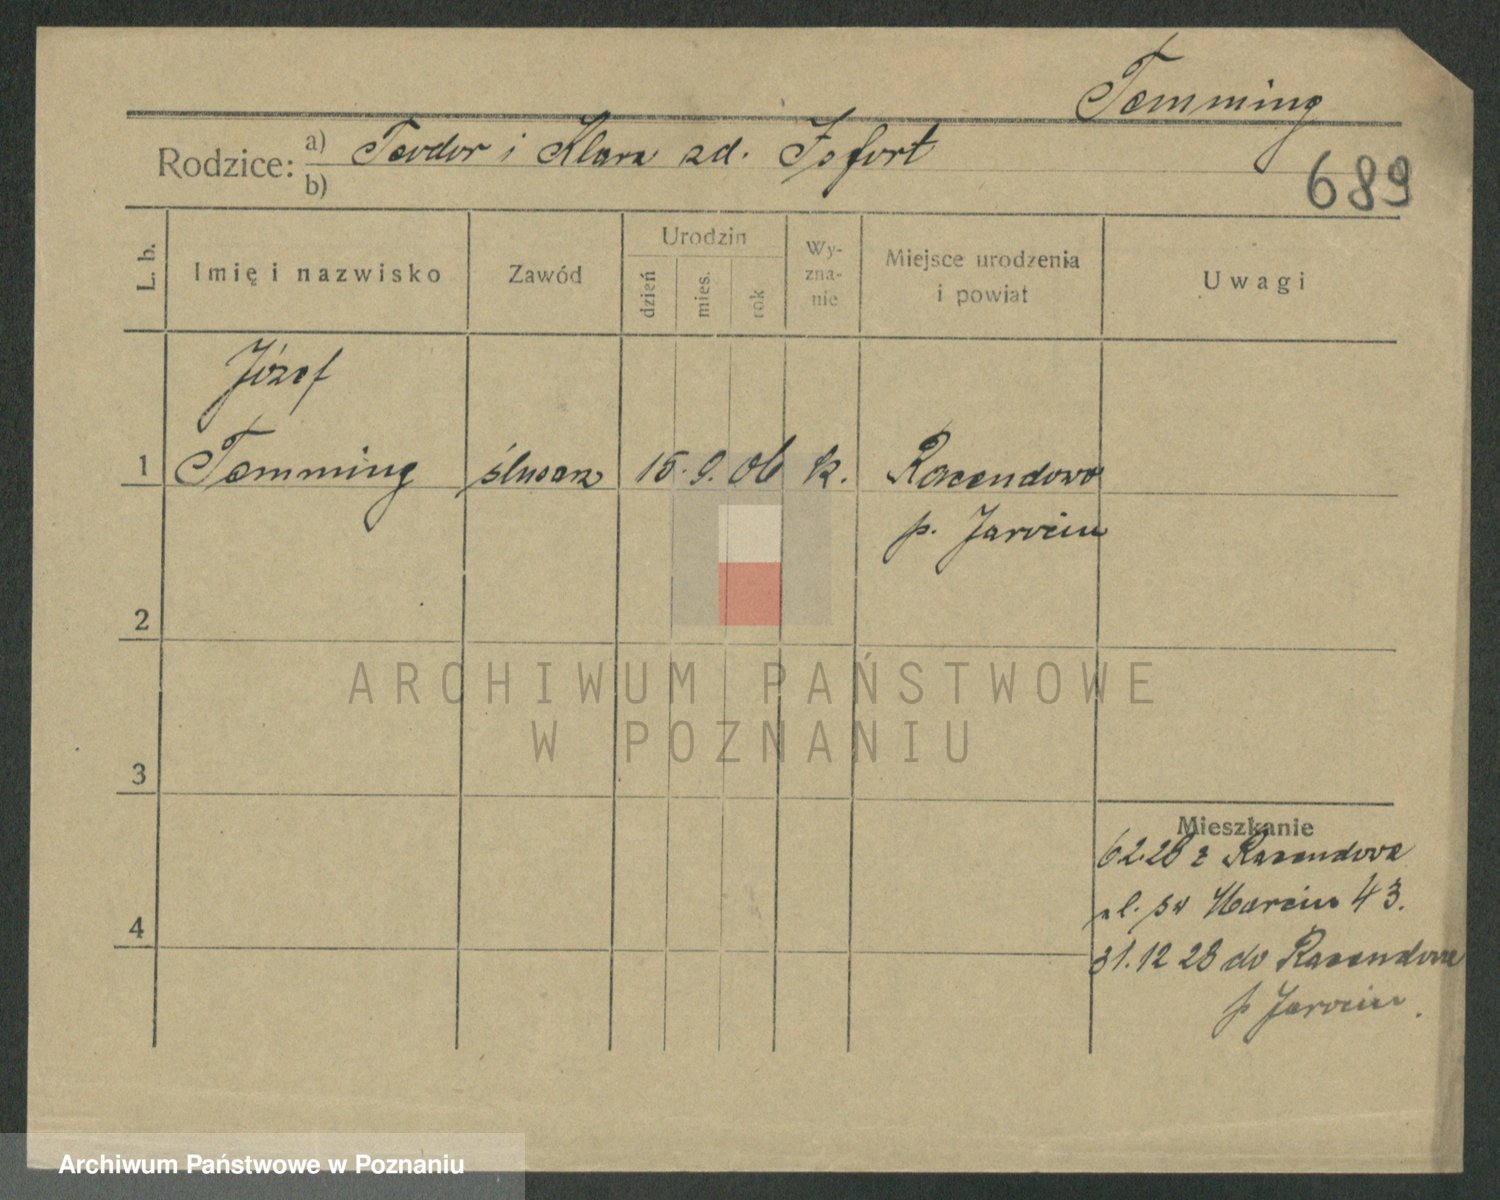 Temming
Rodzice: a) Teodor i Klara zd. Jofort
b)
689
L. b.
Imię i nazwisko
Zawód
Urodzin
dzień
mies.
rok
Wy-
zna-
nie
Miejsce urodzenia
i powiat
Uwagi
Józef
1 Temming ślusarz 15. 9. 06 k. Racendowo
p. Jarocin
2
ARCHIWUM PAŃSTWOWE
W POZNANIU
3
Mieszkanie
6 2.28 z Racendowa
ul. św Marcin 43.
4
31.12 28 do Racendowa
p Jarocin.
Archiwum Państwowe w Poznaniu